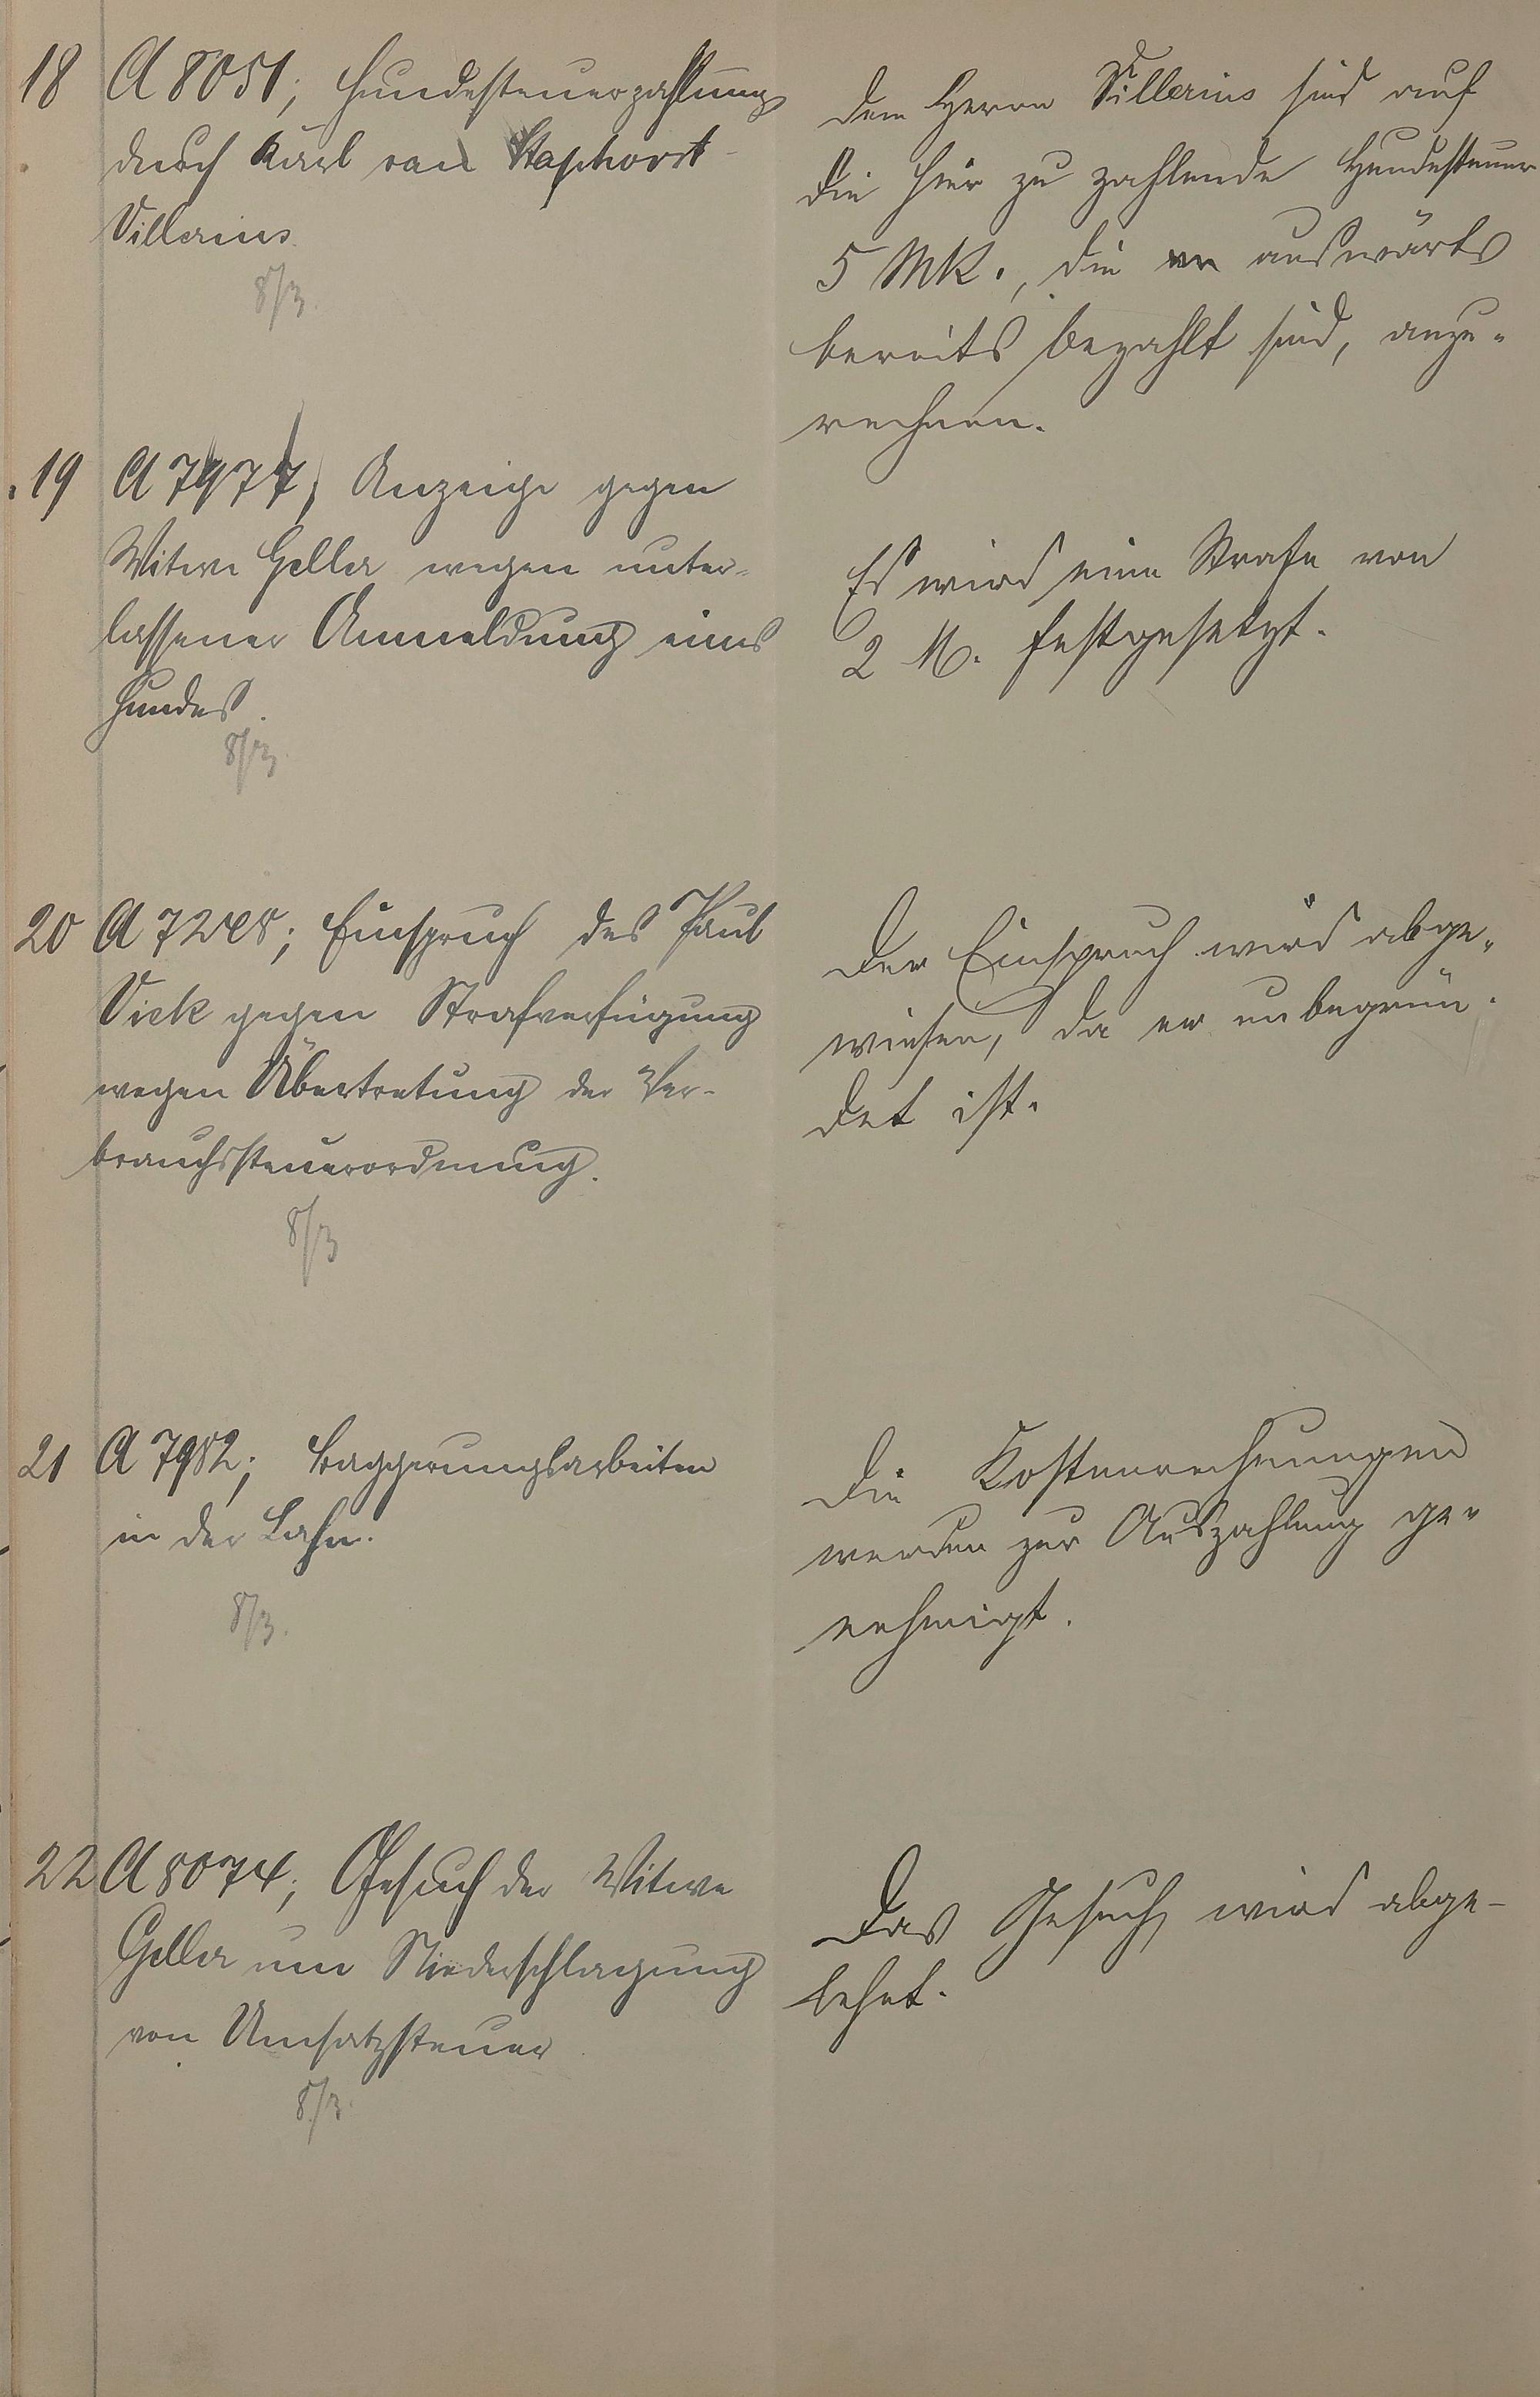 18 A 8051; Hundesteuerzahlung
durch Karl van Staphorst
Villerius
8/3.
Dem Herrn Villerius sind auf
die hier zu zahlende Hundesteuer
5 MK., die auswärts
bereits bezahlt sind, anzu-
rechnen.
19 A 7977, Anzeige gegen
Witwe Geller wegen unter-
lassener Anmeldung eines
Hundes.
8/3.
Es wird eine Strafe von
2 M. festgesetzt.
20 A; Einspruch des Paul
Vick gegen Strafverfügung
wegen Übertretung der Ver-
brauchssteuerordnung.
8/3
Der Einspruch wird abge-
wiesen, da er unbegrün-
det ist.
21 A 7982; Baggerungsarbeiten
in der Lahn.
8/3.
Die Kostenrechnungen
werden zur Auszahlung ge-
nehmigt.
22 A 8074; Gesuch der Witwe
Geller um Niederschlagung
von Umsatzsteuer
8/3.
Das Gesuch wird abge-
lehnt.